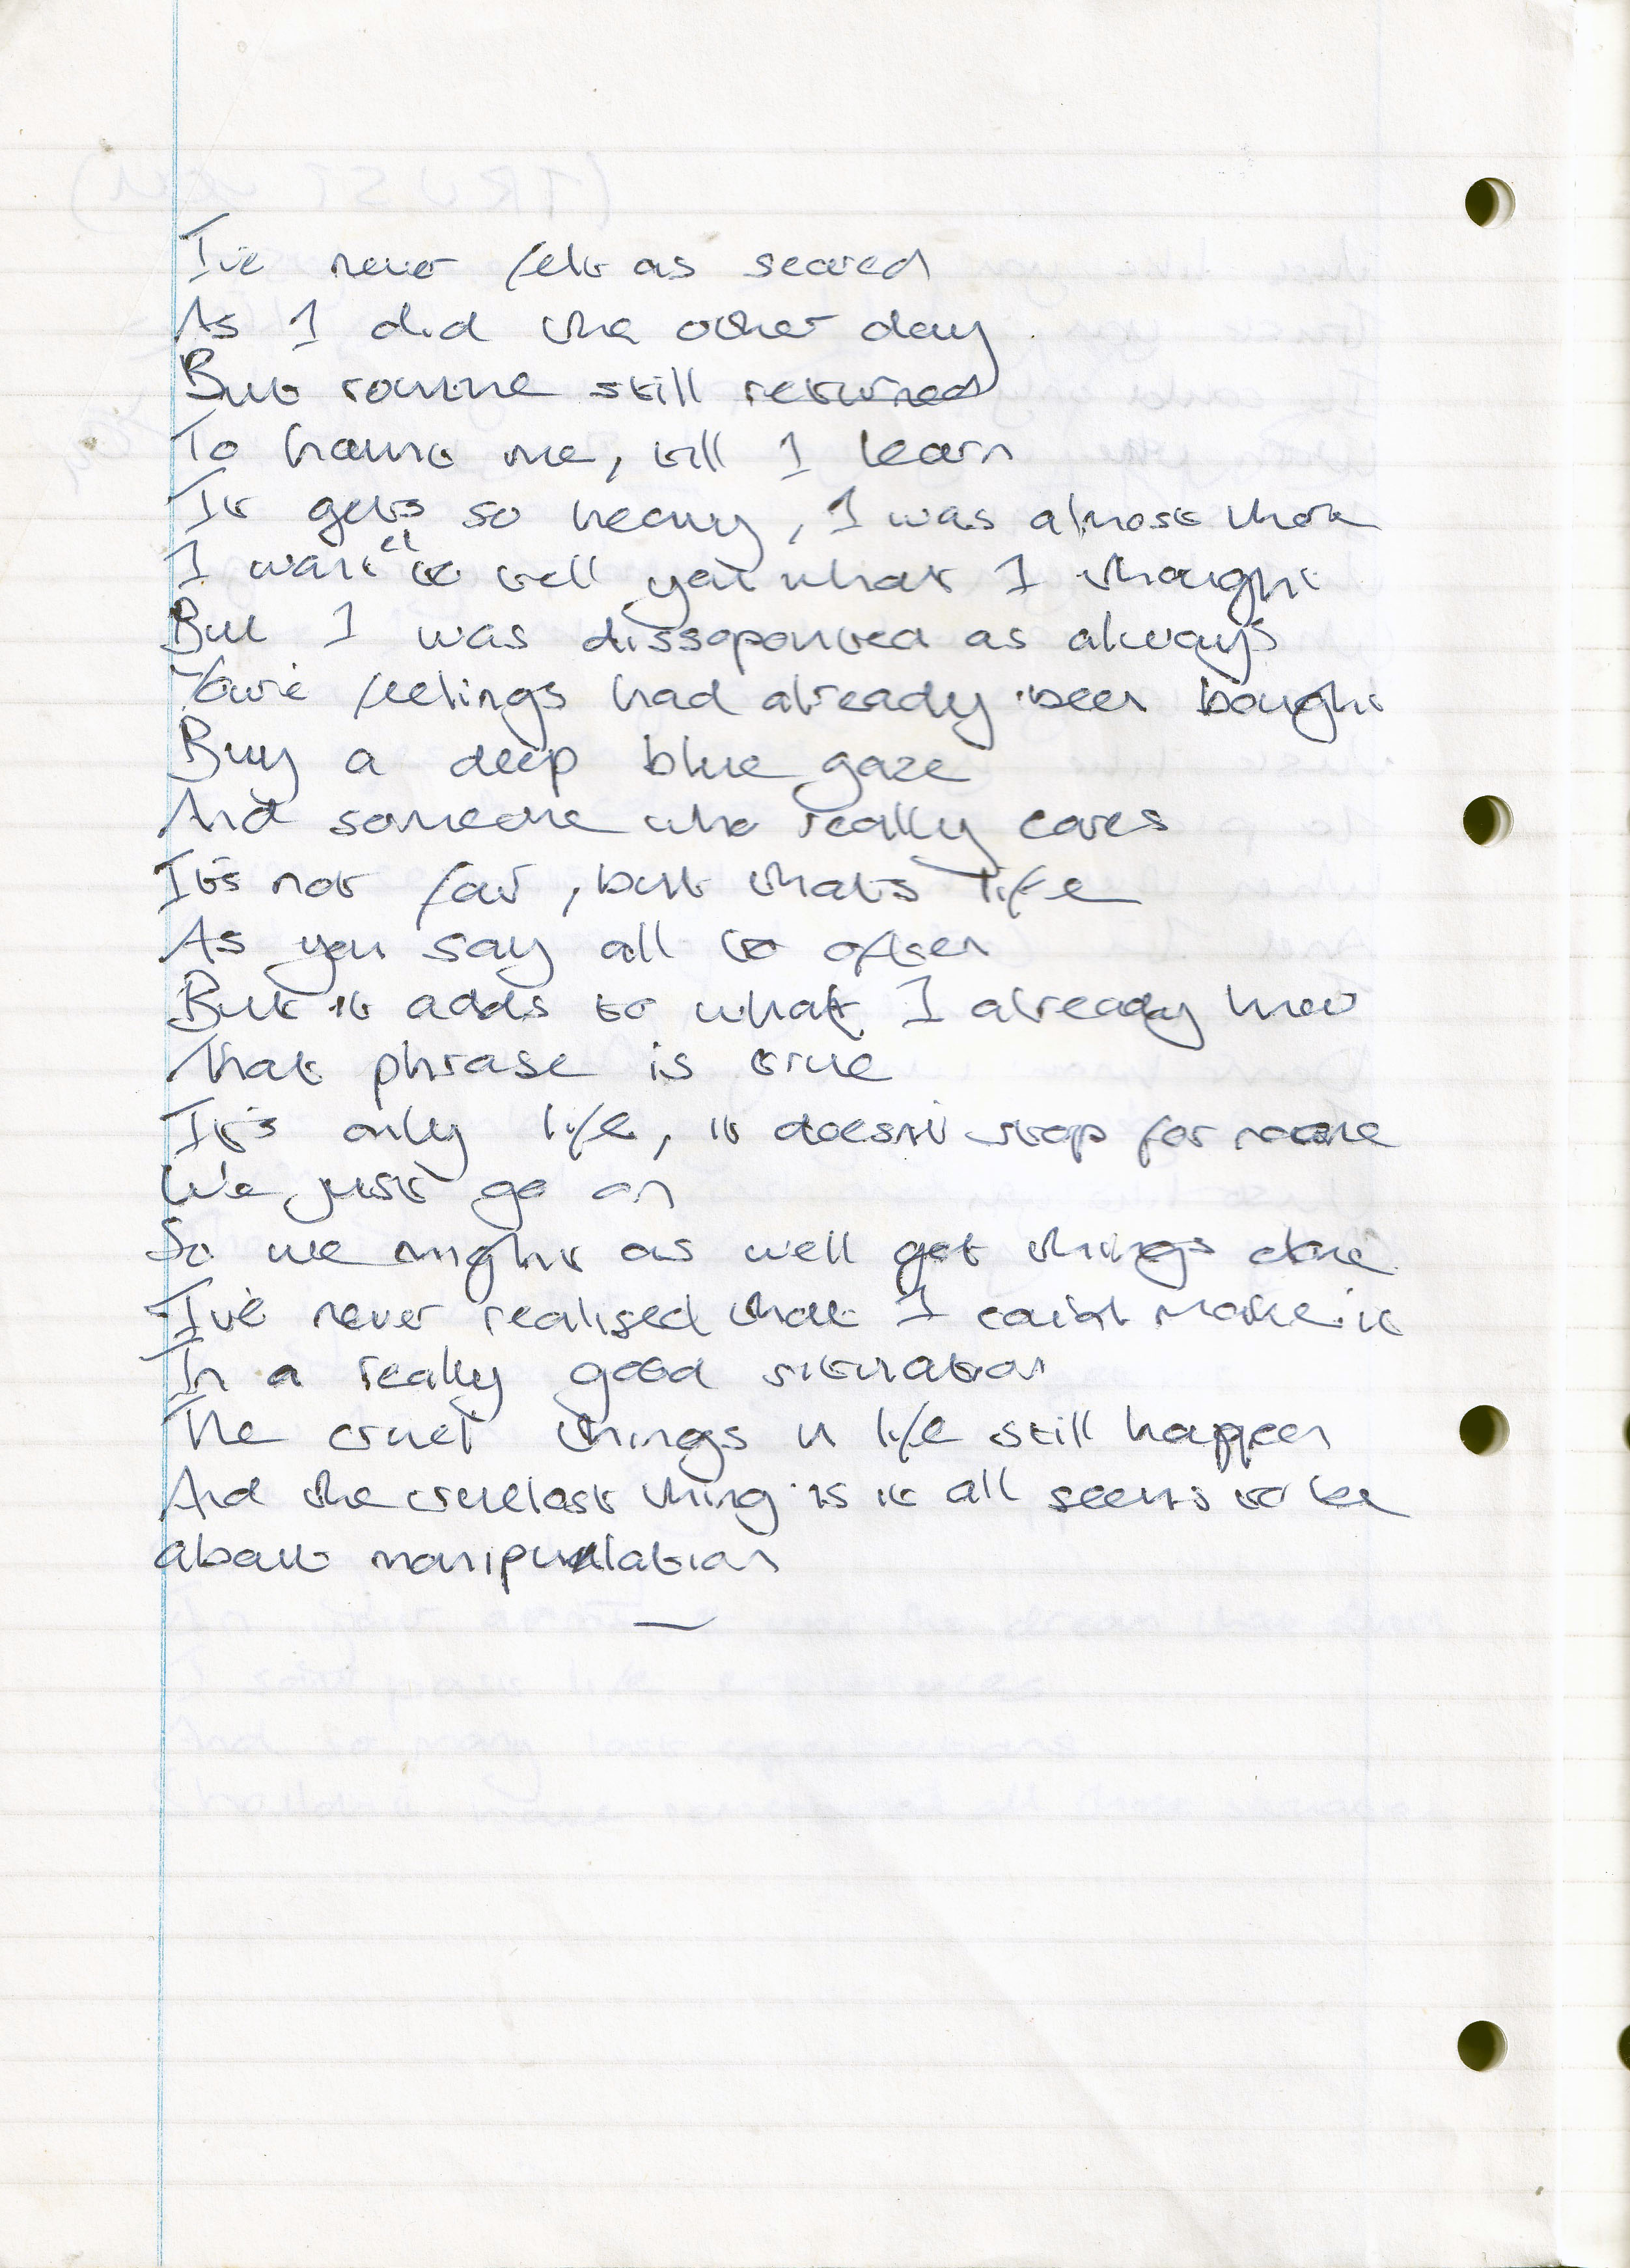 I've never felt as scared
As I did the other day
But routine still returned
To haunt me, till I learn
It gets so heavy, I was almost there
I wanted to tell you what I thought
But I was dissapointed as always
Your feelings had already been bought
Buy a deep blue gaze
And someone who really cares
It's not fair, but thats life
As you say all to often
But it adds to what I already know
That phrase is true
It's only life, it doesn't stop for noone
We just go on
So we might as well get things done
I've never realised that I could make it
In a really good situation
The cruel things in life still happen
And the cruelest thing is it all seems to be
about manipulation